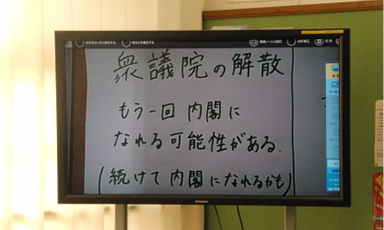 衆議院の解散
もう一回 内閣に
なれる可能性がある.
(続けて 内閣になれるかも)